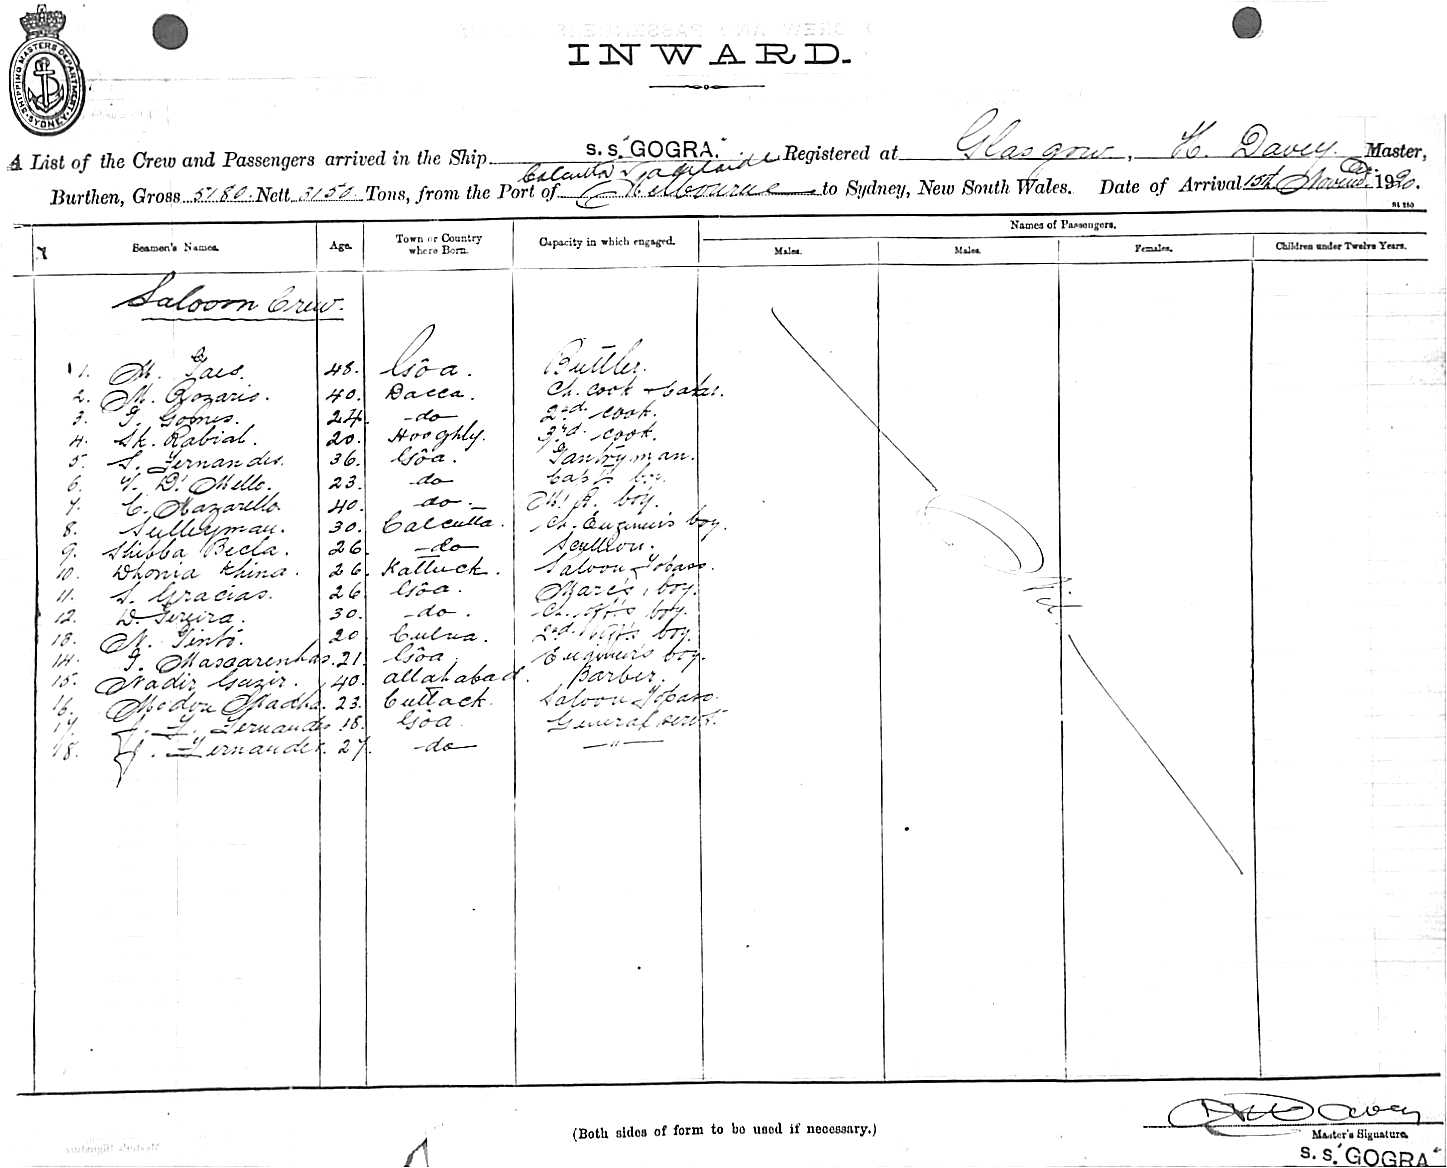 SHIPPING MASTERS DEPARTMENT. SYDNEY.
INWARD.
A List of the Crew and Passengers arrived in the Ship S.S. "GOGRA." Registered at Glasgow, H. Davey Master,
Calcutta & Adelaide
Burthen, Gross 5180. Nett 3150 Tons, from the Port of Melbourne to Sydney, New South Wales. Date of Arrival 15th 1920.
Seamen's Names. Age. Town or Country where Born. Capacity in which engaged. Names of Passengers.
Males. Males. Females. Children under Twelve Years.
Saloon Crew.
1. M. Paes. 48. Goa. Buttler.
2. M. Rozario. 40. Dacca. Ch. cook & baker.
3. Gomes. 24. do 2nd. cook.
4. Sk. Rabial. 20. Hooghly. 3rd. cook.
5. S. Fernandes. 36. Goa. Pantryman.
6. D'Mello. 23. do boy.
7. C. Nazarello. 40. do. boy.
8. Sulleyman. 30. Calcutta. Ch. Engineer's boy.
9. Shibba Becla. 26. do Scullion.
10. Dhonia Khina. 26. Kattuck. Saloon Topass.
11. S. Gracias. 26. Goa. boy.
12. D. Pereira. 30. do. Ch. Off's boy.
13. M. Pinto. 20 2nd. Off's boy.
14. Mascarenhas. 21. Goa. Engineer's boy.
15. Nadir Guzir. 40. Allahabad. Barber.
16. 23. Cuttack. Saloon Topass.
17. Fernandes 18. Goa General serv't.
18. J. Fernandes. 27. do — " —
Nil
H. Davey
(Both sides of form to be used if necessary.)
Master's Signature.
S.S. "GOGRA"